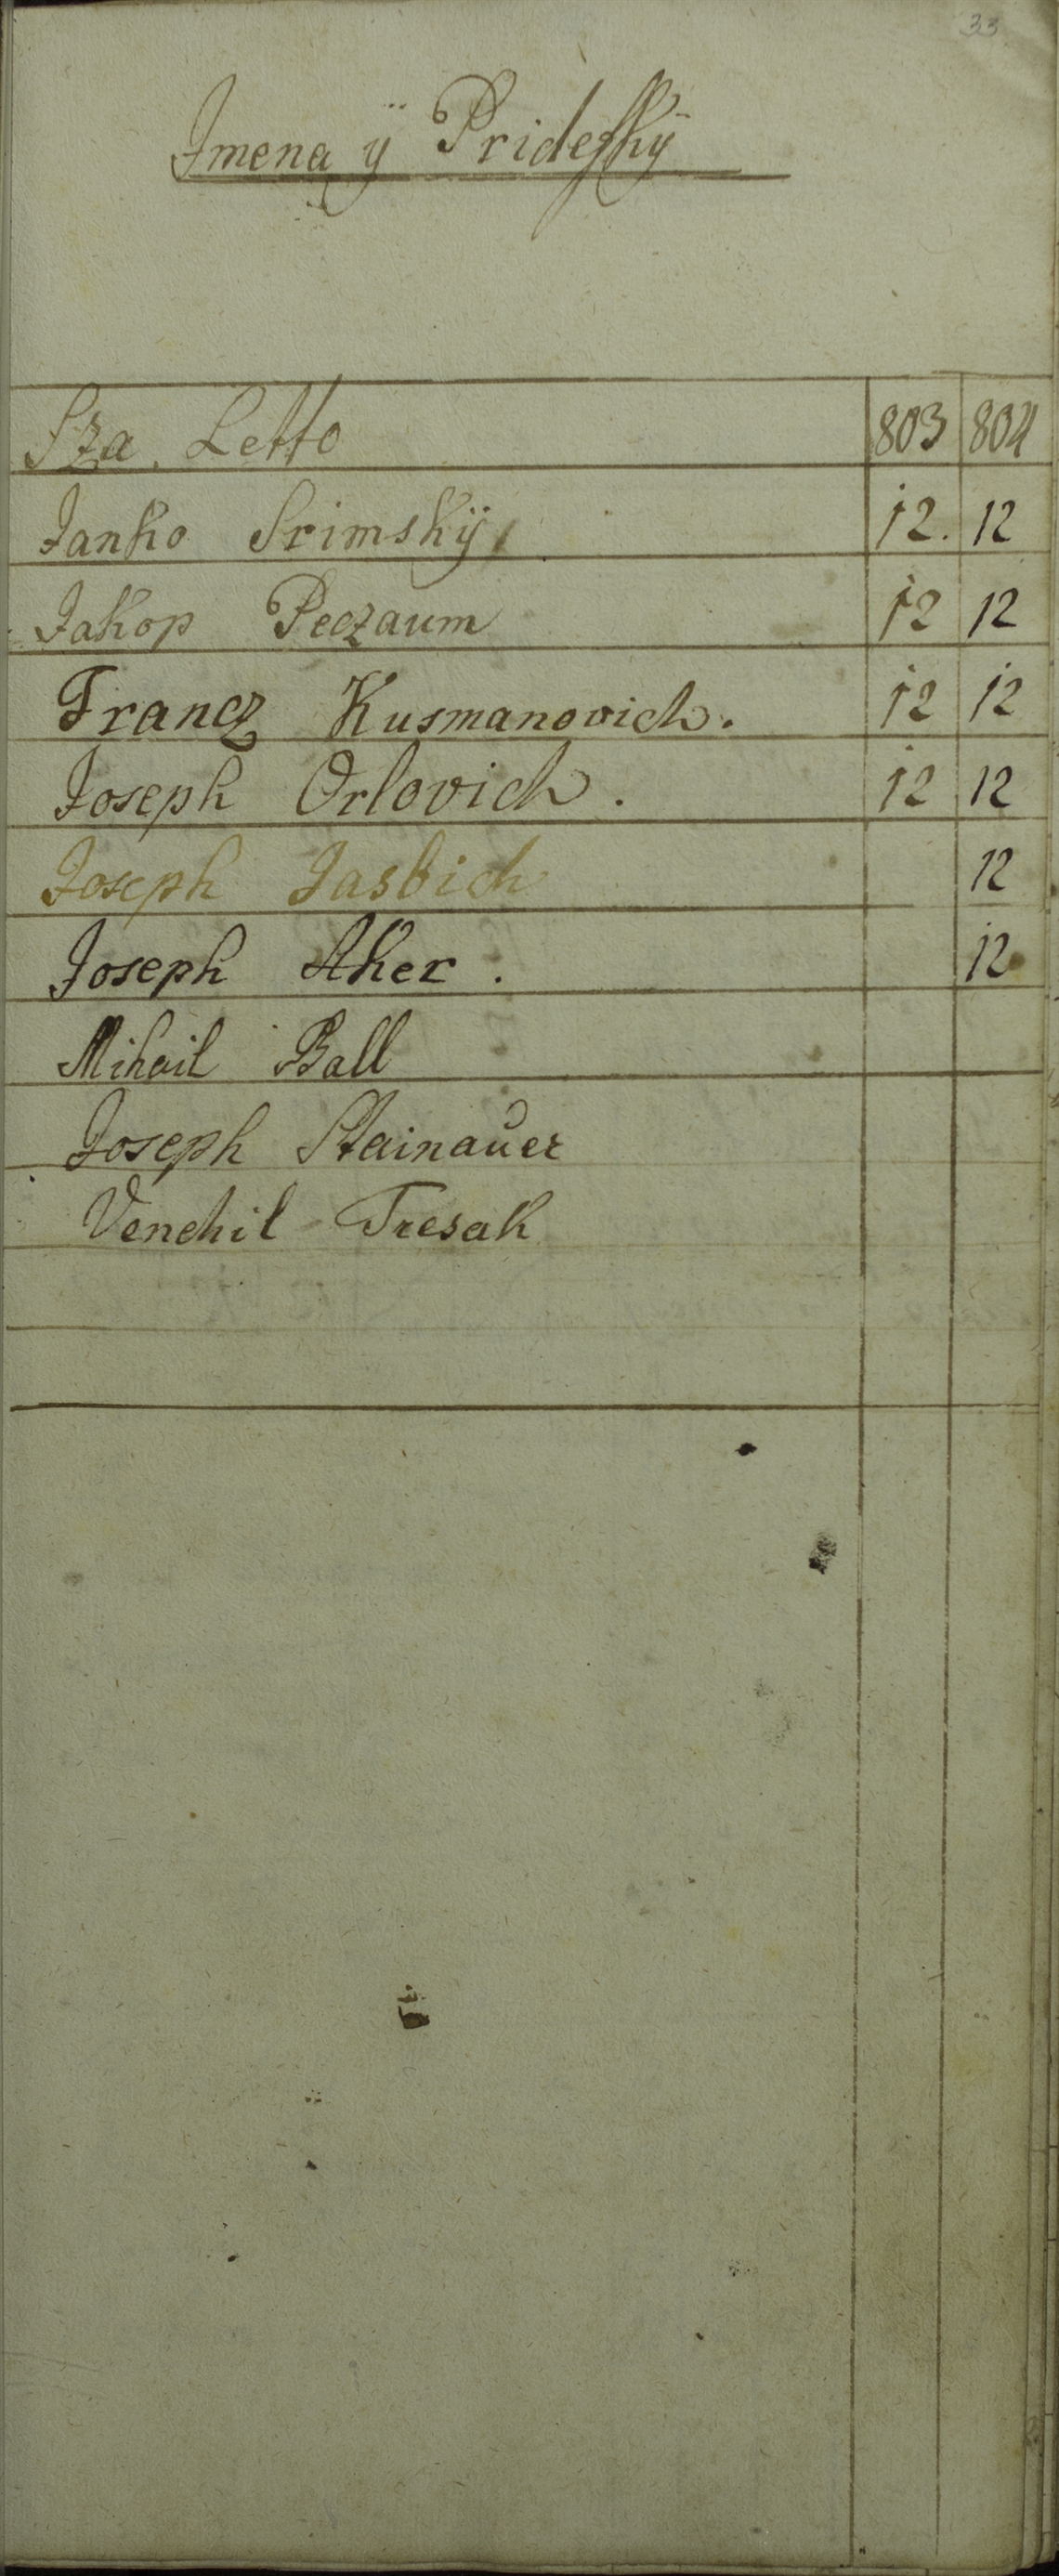 33
Jmena ÿ Prideſkÿ
Sza Letto 803 804
Janko Srimskÿ 12. 12
Jakop Peczaum 12 12
Francz Kusmanovich. 12 12
Joseph Orlovich. 12 12
Joseph Jasbich 12
Joseph Aker. 12
Mihail Ball
Joseph Stainauer
Venchil Tresak